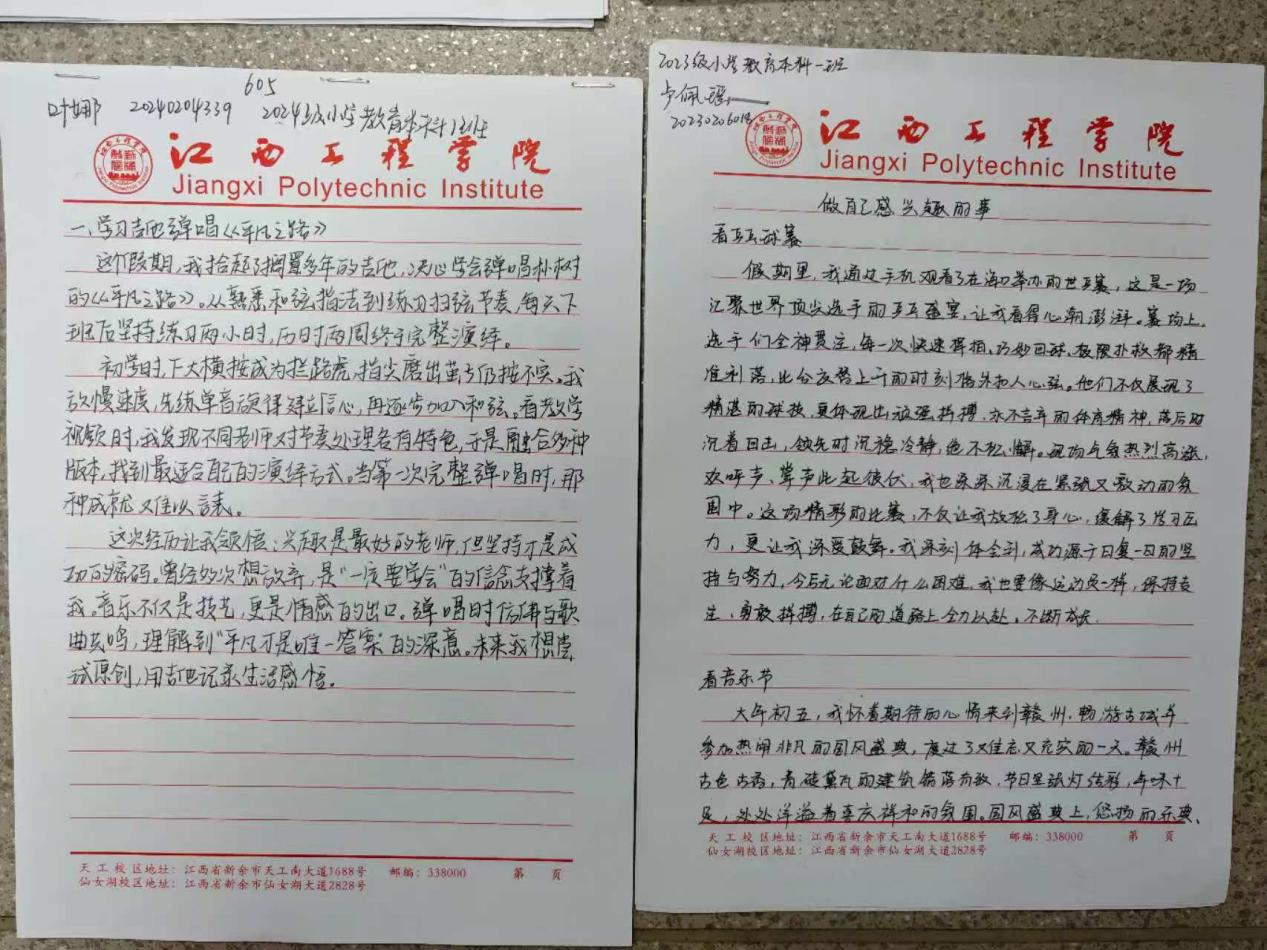 605
叶娜 20240204339 2024级小学教育本科1班
江西工程学院
Jiangxi Polytechnic Institute
一、学习吉他弹唱《平凡之路》
这个假期,我拾起了搁置多年的吉他,决心学会弹唱朴树
的《平凡之路》。从熟悉和弦指法到练习扫弦节奏,每天下
班后坚持练习两小时,历时两周终于完整演绎。
初学时,F大横按成为拦路虎,指尖磨出茧子仍按不实。我
放慢速度,先练单音旋律建立信心,再逐步加入和弦。看教学
视频时,我发现不同老师对节奏处理各有特色,于是融合多种
版本,找到最适合自己的演绎方式。当第一次完整弹唱时,那
种成就又难以言表。
这次经历让我领悟:兴趣是最好的老师,但坚持才是成
功的密码。曾经多次想放弃,是"一定要学会"的信念支撑着
我。音乐不仅是技艺,更是情感的出口。弹唱时仿佛与歌
曲共鸣,理解到"平凡才是唯一答案"的深意。未来我想尝
试原创,用吉他记录生活感悟。
天工校区地址:江西省新余市天工南大道1688号 邮编:338000 第 页
仙女湖校区地址:江西省新余市仙女湖大道2828号
2023级小学教育本科一班
卢佩瑶
2023020601
江西工程学院
Jiangxi Polytechnic Institute
做自己感兴趣的事
看乒乓球赛
假期里,我通过手机观看了在海口举办的世乒赛,这是一场
汇聚世界顶尖选手的乒乓盛宴,让我看得心潮澎湃。赛场上,
选手们全神贯注,每一次快速挥相、巧妙回球、极限扑救都精
准利落,比分交替上升的时刻格外扣人心弦。他们不仅展现了
精湛的球技,更体现出顽强拼搏、永不言弃的体育精神,落后时
沉着回击,领先时沉稳冷静,绝不松懈。现场气氛热烈高涨,
欢呼声、掌声此起彼伏,我也深深沉浸在紧张又激动的氛
围中。这场精彩的比赛,不仅让我放松了身心,缓解了学习压
力,更让我深受鼓舞。我深刻体会到,成功源于日复一日的坚
持与努力,今后无论面对什么困难,我也要像运动员一样,保持专
注、勇敢拼搏,在自己的道路上全力以赴、不断成长.
看音乐节
大年初五,我怀着期待的心情来到赣州,畅游古城并
参加热闹非凡的国风盛典,度过了难忘又充实的一天。赣州
古色古香,青砖黛瓦的建筑错落有致,节日里张灯结彩,年味十
足,处处洋溢着喜庆祥和的氛围。国风盛典上,悠扬的乐典、
天工校区地址:江西省新余市天工南大道1688号 邮编:338000 第 页
仙女湖校区地址:江西省新余市仙女湖大道2828号